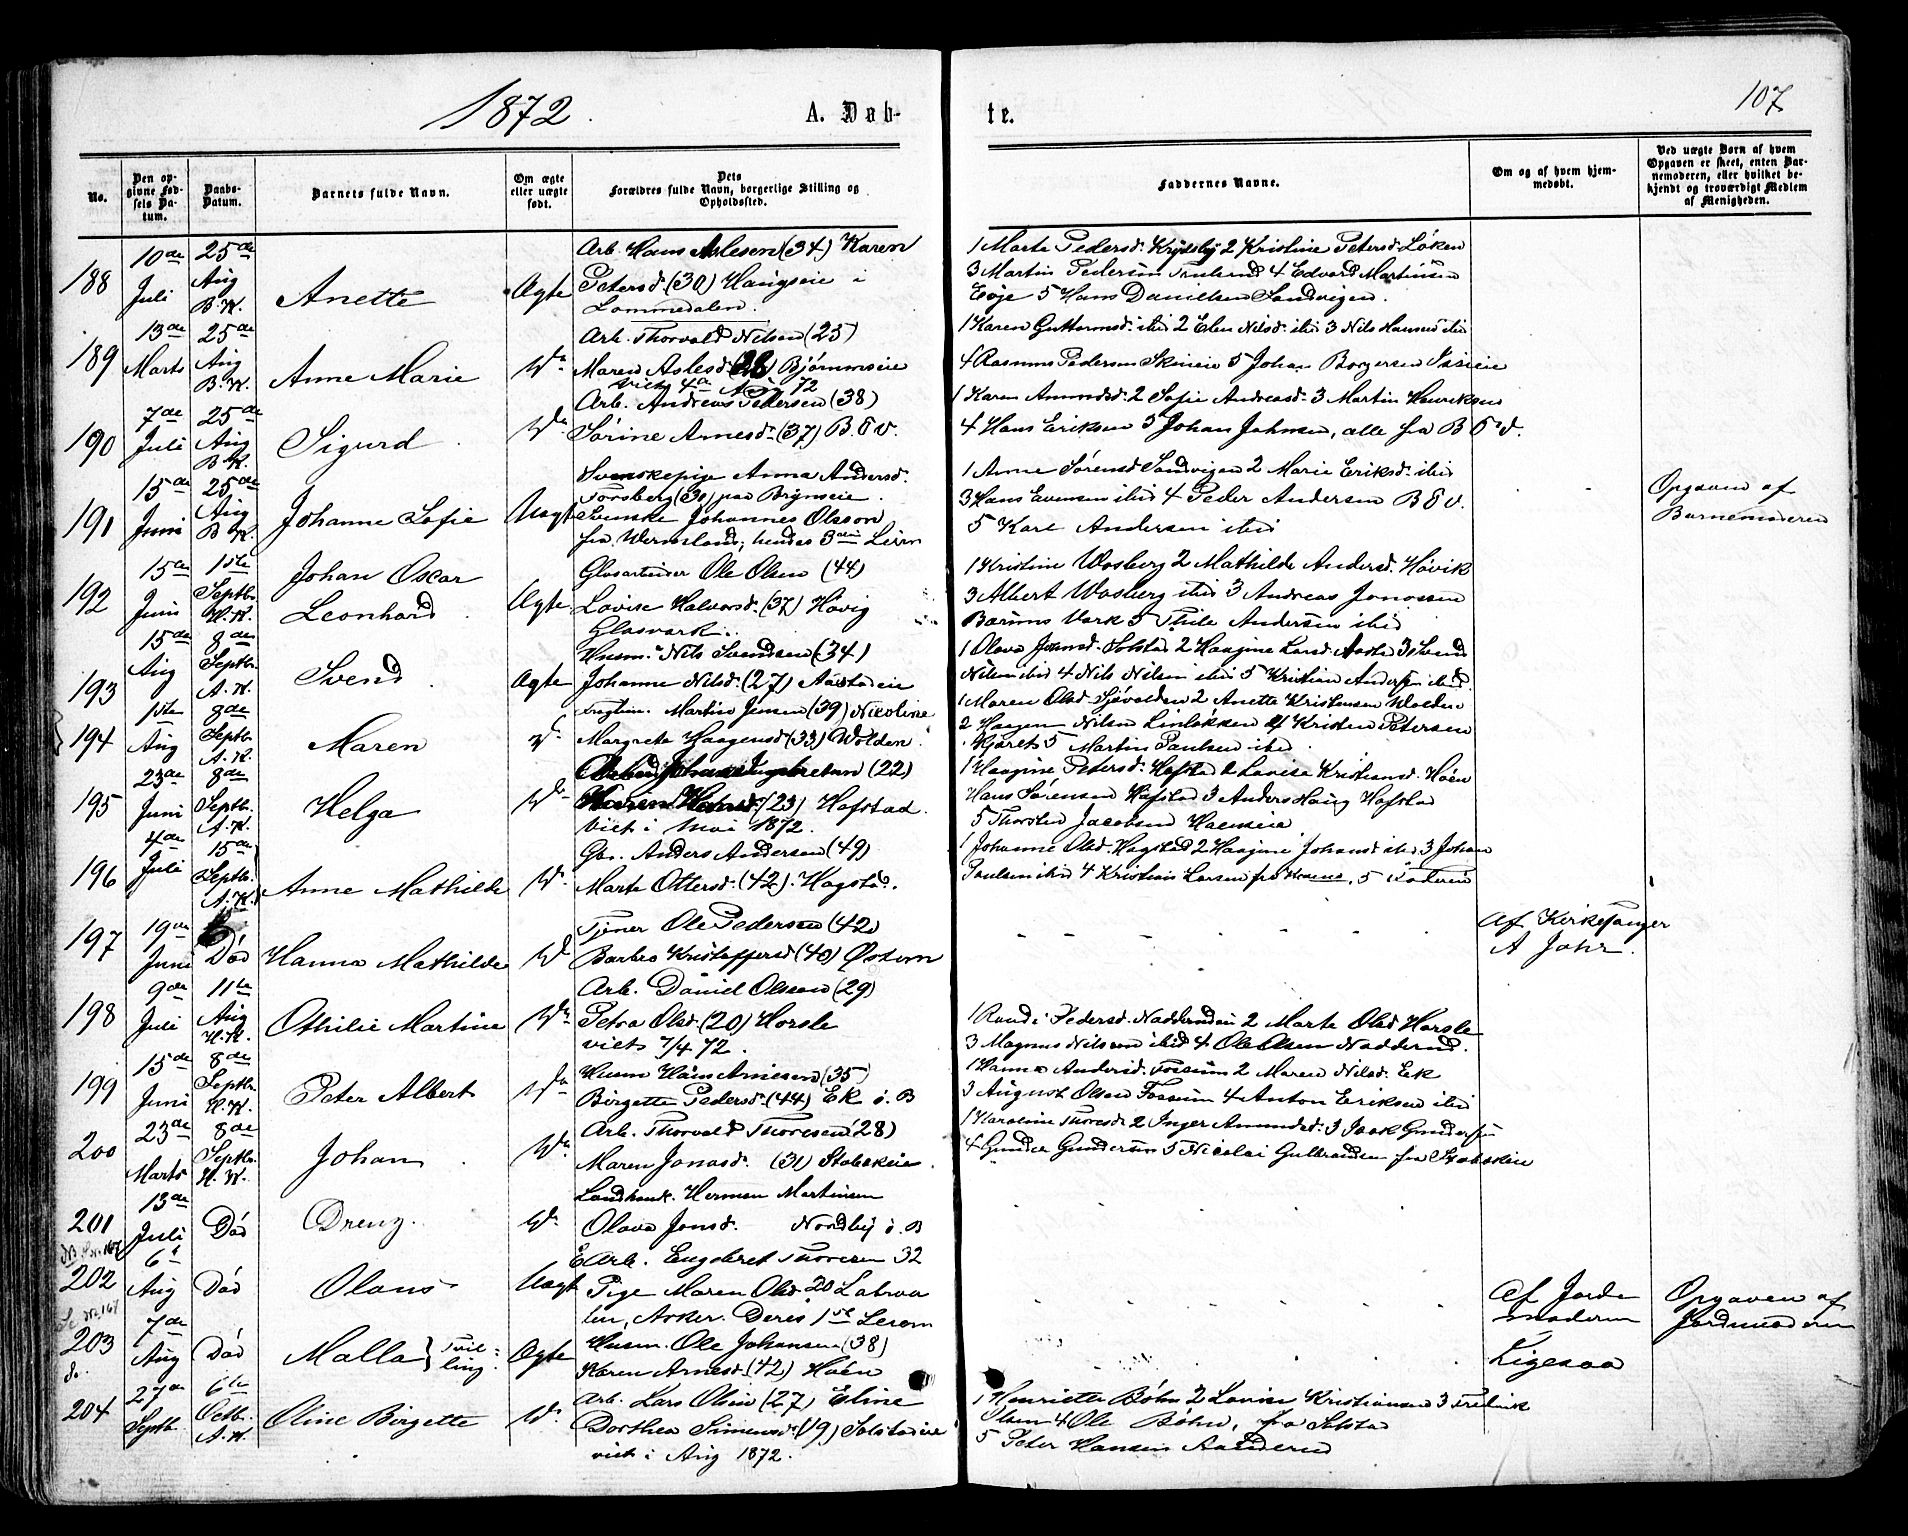 1872. A. Døb-
te. 107
No.
Den op-
givne Fød-
sels Da-
tum.
Daabs-
Datum.
Barnets fulde Navn.
Om ægte
eller uægte
født.
Dets
Forældres fulde Navn, borgerlige Stilling og
Opholdssted.
Faddernes Navne.
Om og af hvem hjem-
medøbt.
Ved uægte Børn af hvem
Opgaven er skeet, enten Bar-
nemoderen, eller hvilket be-
kjendt og troværdigt Medlem
af Menigheden.
188 10de Juli 25de Aug B.K. Anette Ægte
Arb. Hans Aslesen (34) Karen
Petersd. (30) Haugseie i
Lommedalen.
1 Marte Pedersd. 2 Kristine Petersd. Løken
3 Martin Pedersen 4 Edvard Martinsen
Eøje 5 Hans Danielsen Sandvigen.
189 13de Marts 25de Aug B.K. Anne Marie Do
Arb. Thorvald Nilsen (25)
Maren Aslesd. (26) Bjørnmseie
viet 4de Mai 72
1 Karen Guttormsd. ibid 2 Elen Nilsd. ibid 3 Nils Hansen ibid
4 Rasmus Pedersen 5 Johan Borgersen
190 7de Juli 25de Aug B.K. Sigurd Do
Arb. Andreas Pedersen (38)
Sørine Arnesd. (37) B.V.
1 Karen Amundsd. 2 Sofie Andreasd. 3 Martin Henriksen
4 Hans Eriksen 5 Johan Johnsen, alle fra B V.
191 15de Juni 25de Aug B.K. Johanne Sofie Uægt
Svenskepige Anna Andersd.
Forsberg (30) paa Brynseie.
Svenske Johannes Olsson
fra Wermeland; hendes 3die Leierm
1 Anne Sørensd Sandvigen 2 Marie Eriksd. ibid
3 Hans Evensen ibid 4 Peder Andersen B V.
5 Karl Andersen ibid
Opgaven af
Barnemoderen
192 15de Juni 1ste Septbr. H.K. Johan Oscar
Leonhard Ægte
Glasarbeider Ole Olsen (44)
Lovise Halvorsd. (37) Høvig
Glasværk.
1 Kristine Wosberg 2 Mathilde Andersd. Høvik
3 Albert Wosberg ibid 3 Andreas Jonassen
Bærums Værk 5 Thile Andersen ibid
193 15de Aug 8de Septbr. A.K. Svend Ægte
Husm. Nils Svendsen (34)
Johanne Nilsd. (27) Aastadeie
1 Olava Jonsd. Solstad 2 Haagine Larsd. Aasta 3 Svend
Nilsen ibid 4 Nils Nilsen ibid 5 Kristian Andersen ibid.
194 1ste Aug 8de Septbr. A.K. Maren Do
Martin Jensen (39) Nicoline
Margrete Haagensd. (33) Wolden.
1 Maren Olsd. Sjøvolden 2 Anette Kristensen Wolden
2 Haagen Nilsen Linløkken 4 Kristen Petersen
5 Martin Paulsen ibid.
195 23de Juni 8de Septbr. A.K. Helga Do
Johan Ingebretsen (22)
Karen Hansd. (23) Hofstad.
Viet i Mai 1872.
1 Haagine Petersd. Hofstad 2 Lovise Kristiansd. Høen
Hans Sørensen Hofstad 3 Anders Haug Hofstad
5 Thorsten Jacobsen
196 4de Juli 15de Septbr. A.K. Anne Mathilde Do
Gbr. Anders Andersen (49)
Marte Ottersd. (42). Hogstad.
1 Johanne Olsd. Hogstad 2 Haagine Johansd. ibid 3 Johan
Paulsen ibid 4 Kristian Larsen fra 5
197 19de Juni Død Hanna Mathilde Do
Tjener Ole Pedersen (42)
Barbro Kristoffersd (40) Østern
Af Kirkesanger
A Johr.
198 9de Juli 11te Aug H.K. Othilie Martine Do
Arb. Daniel Olsen (29)
Petra Olsd. (20) Horsle
viet 7/4 72.
1 Randi Pedersd. Nadderud 2 Marte Olsd Horsle
3 Magnus Nilsen ibid 4 Ole Olsen Nadderud.
199 15de Juni 8de Septbr. H.K. Peter Albert Do
Husm Hans Arnesen (35)
Birgette Pedersd. (44) Ek ø. B
1 Hanna Andersd. Fossum 2 Maren Nilsd. Ek
3 August Olsen Fossum 4 Anton Eriksen ibid
200 23de Marts 8de Septbr. H.K. Johan Do
Arb. Thorvald Thoresen (28)
Maren Jonasd. (31) Stabekeie.
1 Karoline Thoresd. 2 Inger Amundsd. 3 Isak Gundersen
4 Gunder Gundersen 5 Nicolai Gulbrandsen fra Stabekeie
201 13de Juli Død Dreng. Do
Landhand. Herman Martinsen
Olava Jonsd. Nordby ø. B
202 6te Aug Død Olaus Uægt
E Arb. Engebret Thoresen 32
Pige Maren Olsd. 20
Aker. Deres 1ste Leierm
Af Jorde
moderen
Opgaven af
Jordmoderen
203 7de Aug Død Malla } Tvil-
ling. Ægte
Husm. Ole Johansen (38)
Karen Arnesd. (42) Høen
Ligesaa
204 27de Septbr. 6te Octbr. A.K. Oline Birgette Do
Arb. Lars Olsen (27) Eline
Dorthea Simensd. (19) Solstadeie
viet i Aug 1872.
1 Henriette Bøhn 2 Lovise Kristiansen 3 Fredrik
Olsen 4 Ole Bøhn, fra Solstad
5 Peter Hansen